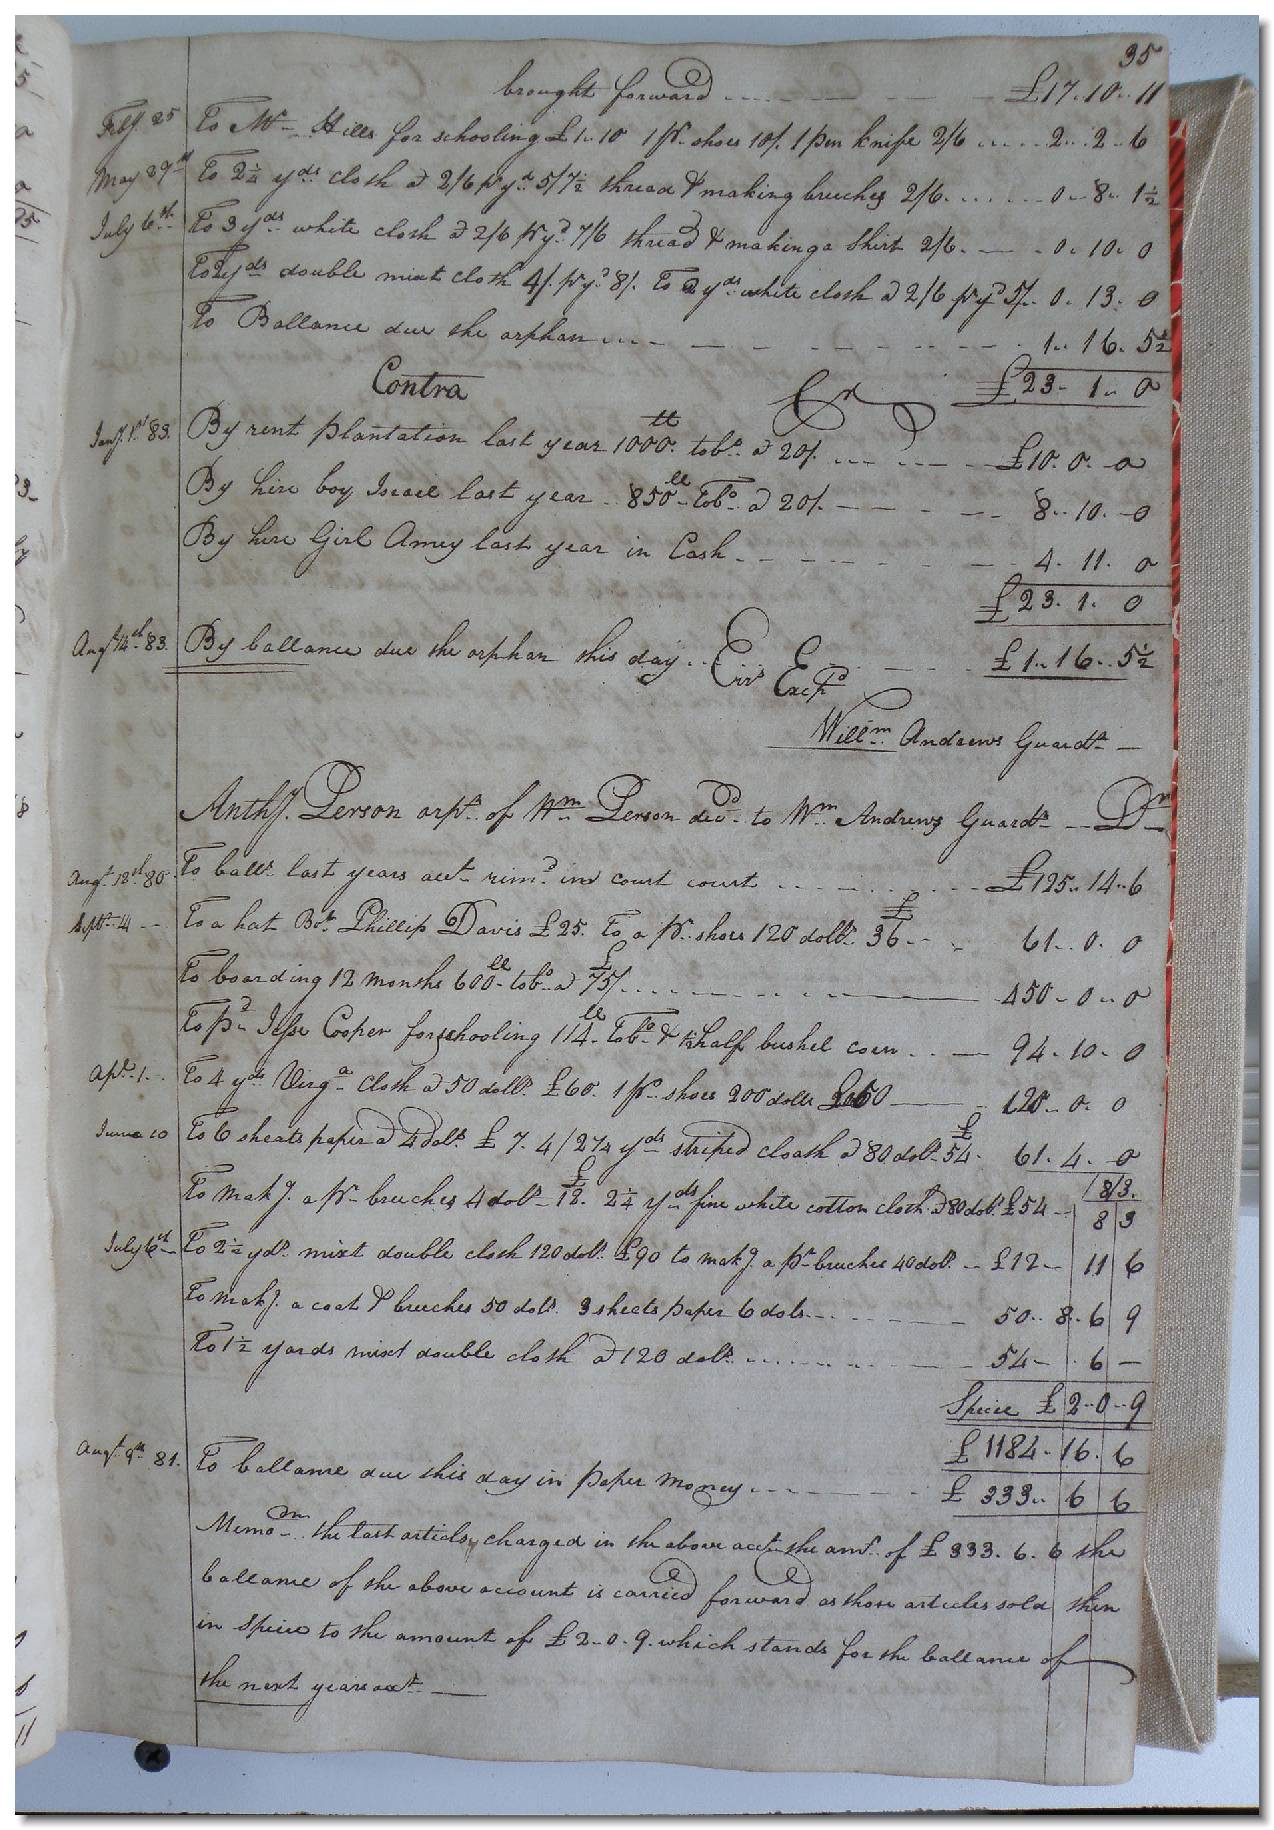 35
brought forward £17..10..11
Feby. 25 To Mr. Hills for schooling £1..10 1 pr. shoes 10/. 1 pen knife 2/6 2..2..6
May 29th To 2¼ yds cloth @ 2/6 pr yd 5/7½ thread & making breeches 2/6 0..8..1½
July 6th To 3 yds white cloth @ 2/6 pr yd 7/6 thread & making a shirt 2/6 0..10..0
To 2 yds double mixt cloth 4/. pr yd 8/. To 2 yds white cloth @ 2/6 pr yd 5/. 0..13..0
To Ballance due the orphan 1..16..5½
£23..1..0
Contra Cr
Jany. 1st 83. By rent plantation last year 1000 tt tobo. @ 20/. £10..0..0
By hire boy Israel last year 850 tt Tobo. @ 20/. 8..10..0
By hire Girl Amey last year in Cash 4..11..0
£23..1..0
Augt 14th 83. By ballance due the orphan this day Errs Excpd £1..16..5½
Willm. Andrews Guardn
Anthy. Person orpn. of Wm. Person decd. to Wm. Andrews Guardn Dr
Augt. 18th 80 To balle. last years acct. rimd. in court court £125..14..6
Septr. 4 To a hat Bot. Phillip Davis £25. To a pr. shoes 120 dolls. £36 61..0..0
To boarding 12 months 600 tt tobo. @ £75/. 450..0..0
To pd. Jesse Cooper for schooling 114 tt Tobo. & half bushel corn 94..10..0
Apr. 1. To 4 yds Virga cloth @ 50 dolls. £60. 1 pr. shoes 200 dolls £60 120..0..0
June 10 To 6 sheats paper @ 4 dols. £7.4/ 2¼ yds striped cloath @ 80 dols. £54. 61..4..0
To makg. a pr. breeches 4 dols. £12. 2¼ yds fine white cotton cloth @ 80 dols. £54 8/3. 8 3
July 6th To 2½ yds. mixt double cloth 120 dols. £90 to makg. a pr. breeches 40 dols. £12 11 6
To makg. a coat & breeches 50 dols. 3 sheets paper 6 dols 50..8..6 9
To 1½ yards mixt double cloth @ 120 dols. 54 6
Specie £2..0..9
£1184..16..6
Augt. 9th 81. To ballance due this day in paper money £333..6 6
Memom. the last articles charged in the above acct. the amt. of £333.6.6 the
ballance of the above account is carried forward as those articles sold then
in Specie to the amount of £2..0..9. which stands for the ballance of
the next years acct.